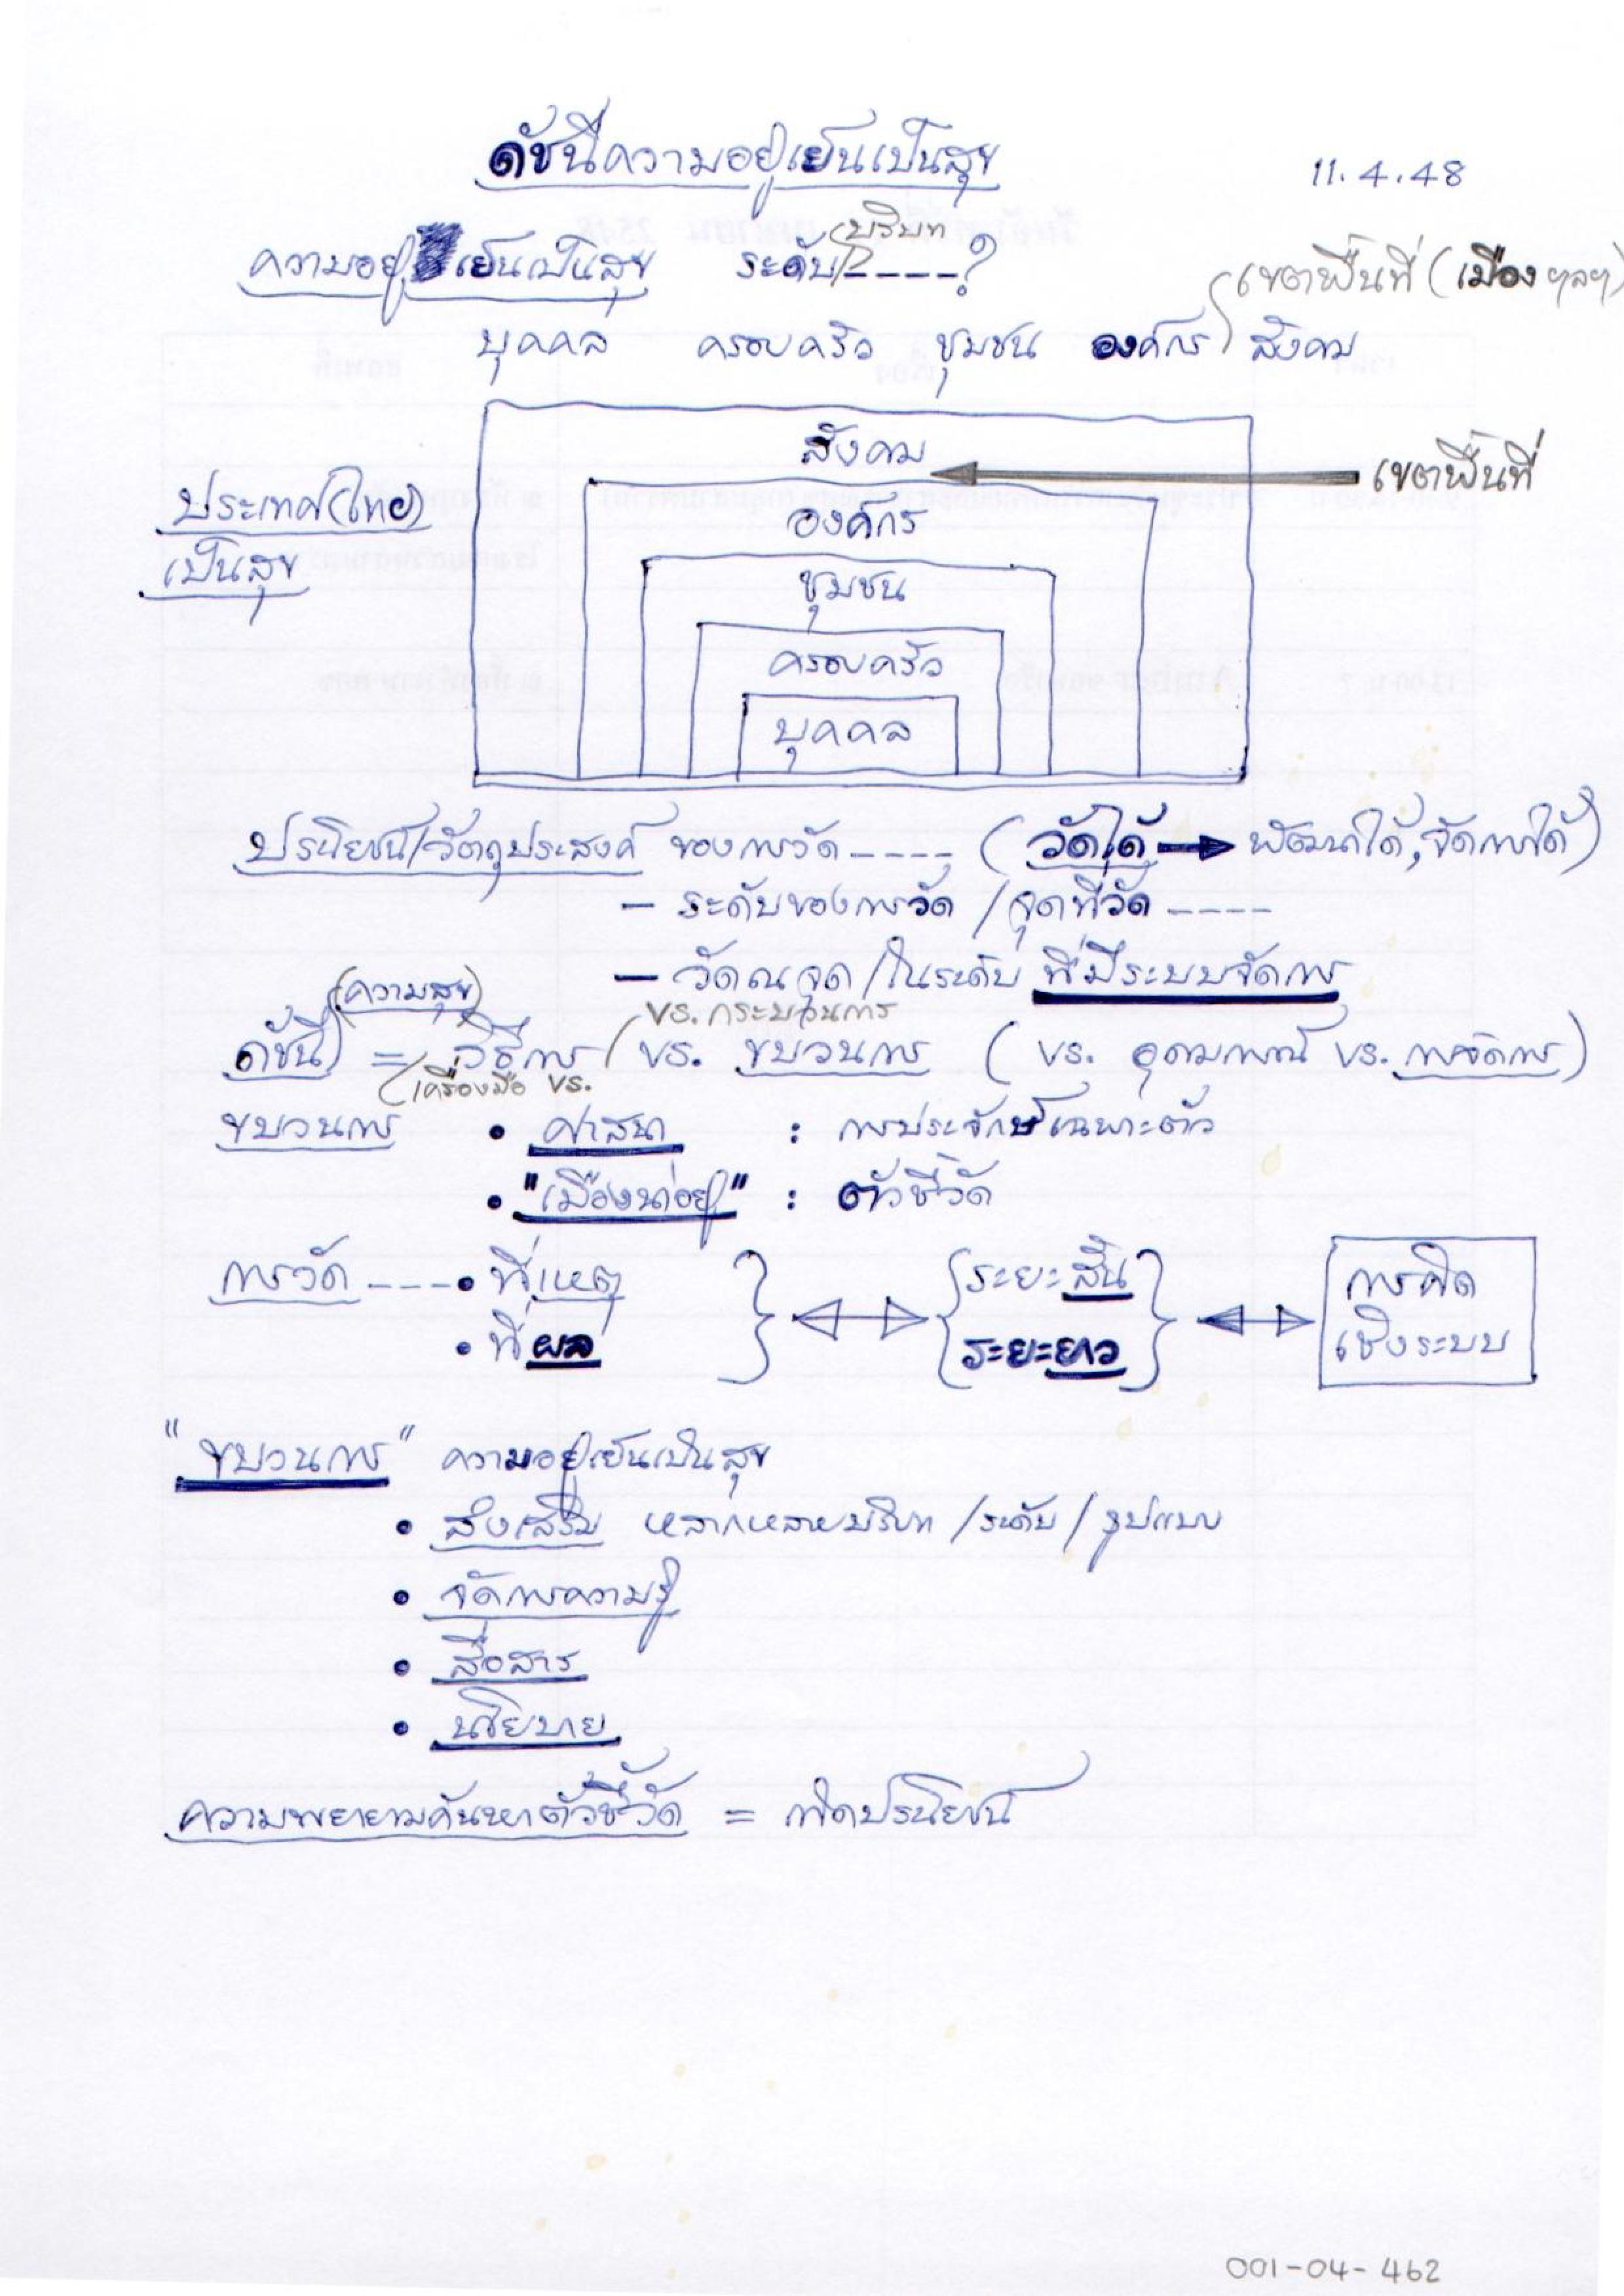 ดัชนีความอยู่เย็นเป็นสุข
11.4.48
ความอยู่เย็นเป็นสุข ระดับ/บริบท ----?
บุคคล ครอบครัว ชุมชน องค์กร เขตพื้นที่ (เมือง ฯลฯ) สังคม
สังคม
เขตพื้นที่
ประเทศ(ไทย)
เป็นสุข
องค์กร
ชุมชน
ครอบครัว
บุคคล
ประโยชน์/วัตถุประสงค์ ของการวัด ---- (วัดได้ → พัฒนาได้, จัดการได้)
- ระดับของการวัด / จุดที่วัด ----
- วัด ณ จุด / ในระดับ ที่มีระบบจัดการ
(ความสุข)
vs. กระบวนการ
ดัชนี = วิธีการ / vs. ขบวนการ ( vs. อุดมการณ์ vs. การจัดการ )
(เครื่องมือ vs.
ขบวนการ • ศาสนา : การประจักษ์เฉพาะตัว
• "เมืองน่าอยู่" : ตัวชี้วัด
การวัด ---- • ที่เหตุ
• ที่ผล
ระยะสั้น
ระยะยาว
การคิด
เชิงระบบ
"ขบวนการ" ความอยู่เย็นเป็นสุข
• ส่งเสริม หลากหลายบริบท / ระดับ / รูปแบบ
• จัดการความรู้
• สื่อสาร
• นโยบาย
ความพยายามค้นหาตัวชี้วัด = เกิดประโยชน์
001-04-462